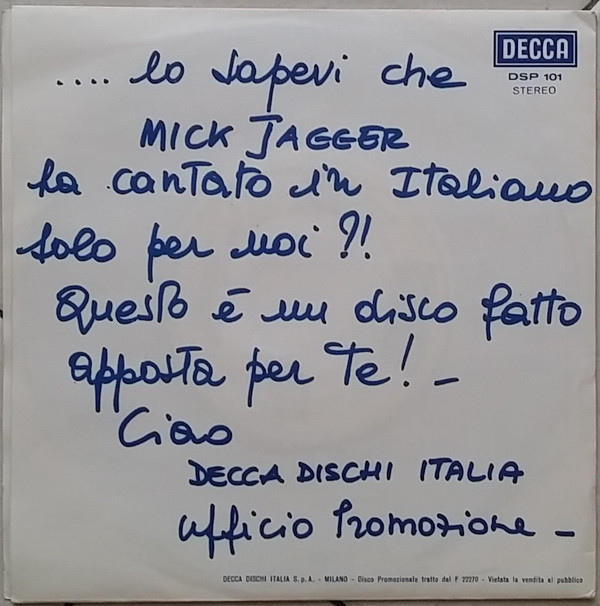 DECCA
DSP 101
STEREO
.... lo sapevi che
MICK JAGGER
ha cantato in Italiano
solo per noi ?!
Questo é un disco fatto
apposta per te! -
Ciao
DECCA DISCHI ITALIA
Ufficio Promozione -
DECCA DISCHI ITALIA S.p.A. - MILANO - Disco Promozionale tratto dal F 22270 - Vietata la vendita al pubblico